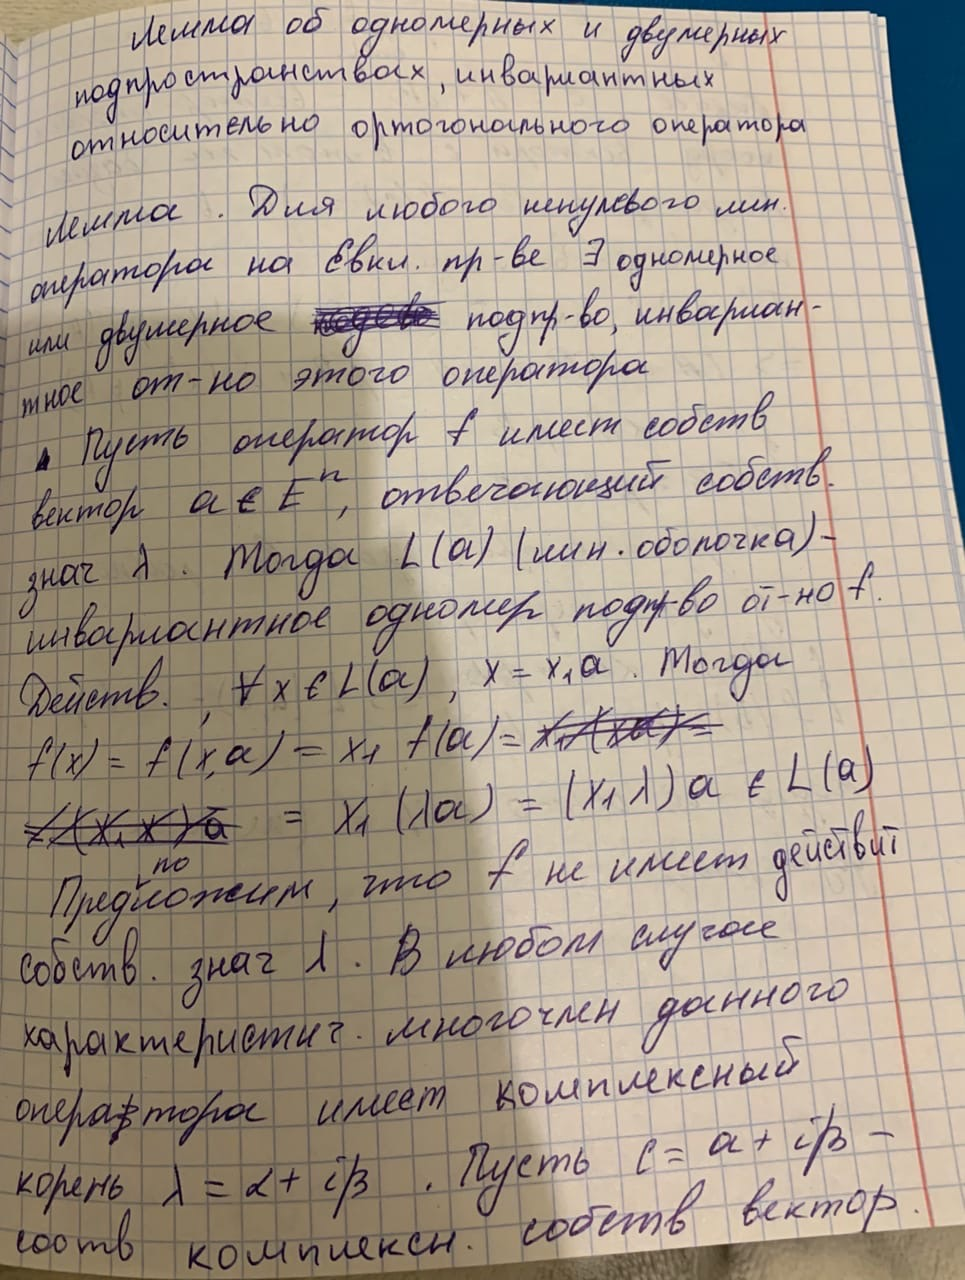 Лемма об одномерных и двумерных
подпространствах, инвариантных
относительно ортогонального оператора
Лемма. Для любого ненулевого лин.
оператора на Евкл. пр-ве ∃ одномерное
или двумерное подпр-во, инвариан-
тное от-но этого оператора
Пусть оператор f имеет собств
вектор a ∈ Eⁿ, отвечающий собств.
знач λ. Тогда L(a) (лин. оболочка) -
инвариантное одномер подпр-во от-но f.
Действ., ∀ x ∈ L(a), x = x₁a. Тогда
f(x) = f(x₁a) = x₁ f(a) =
= x₁ (λa) = (x₁ λ) a ∈ L(a)
Предположим, что f не имеет действит
собств. знач λ. В любом случае
характеристич. многочлен данного
оператора имеет комплексный
корень λ = α + iβ. Пусть c = a + iβ -
соотв комплексн. собств вектор.